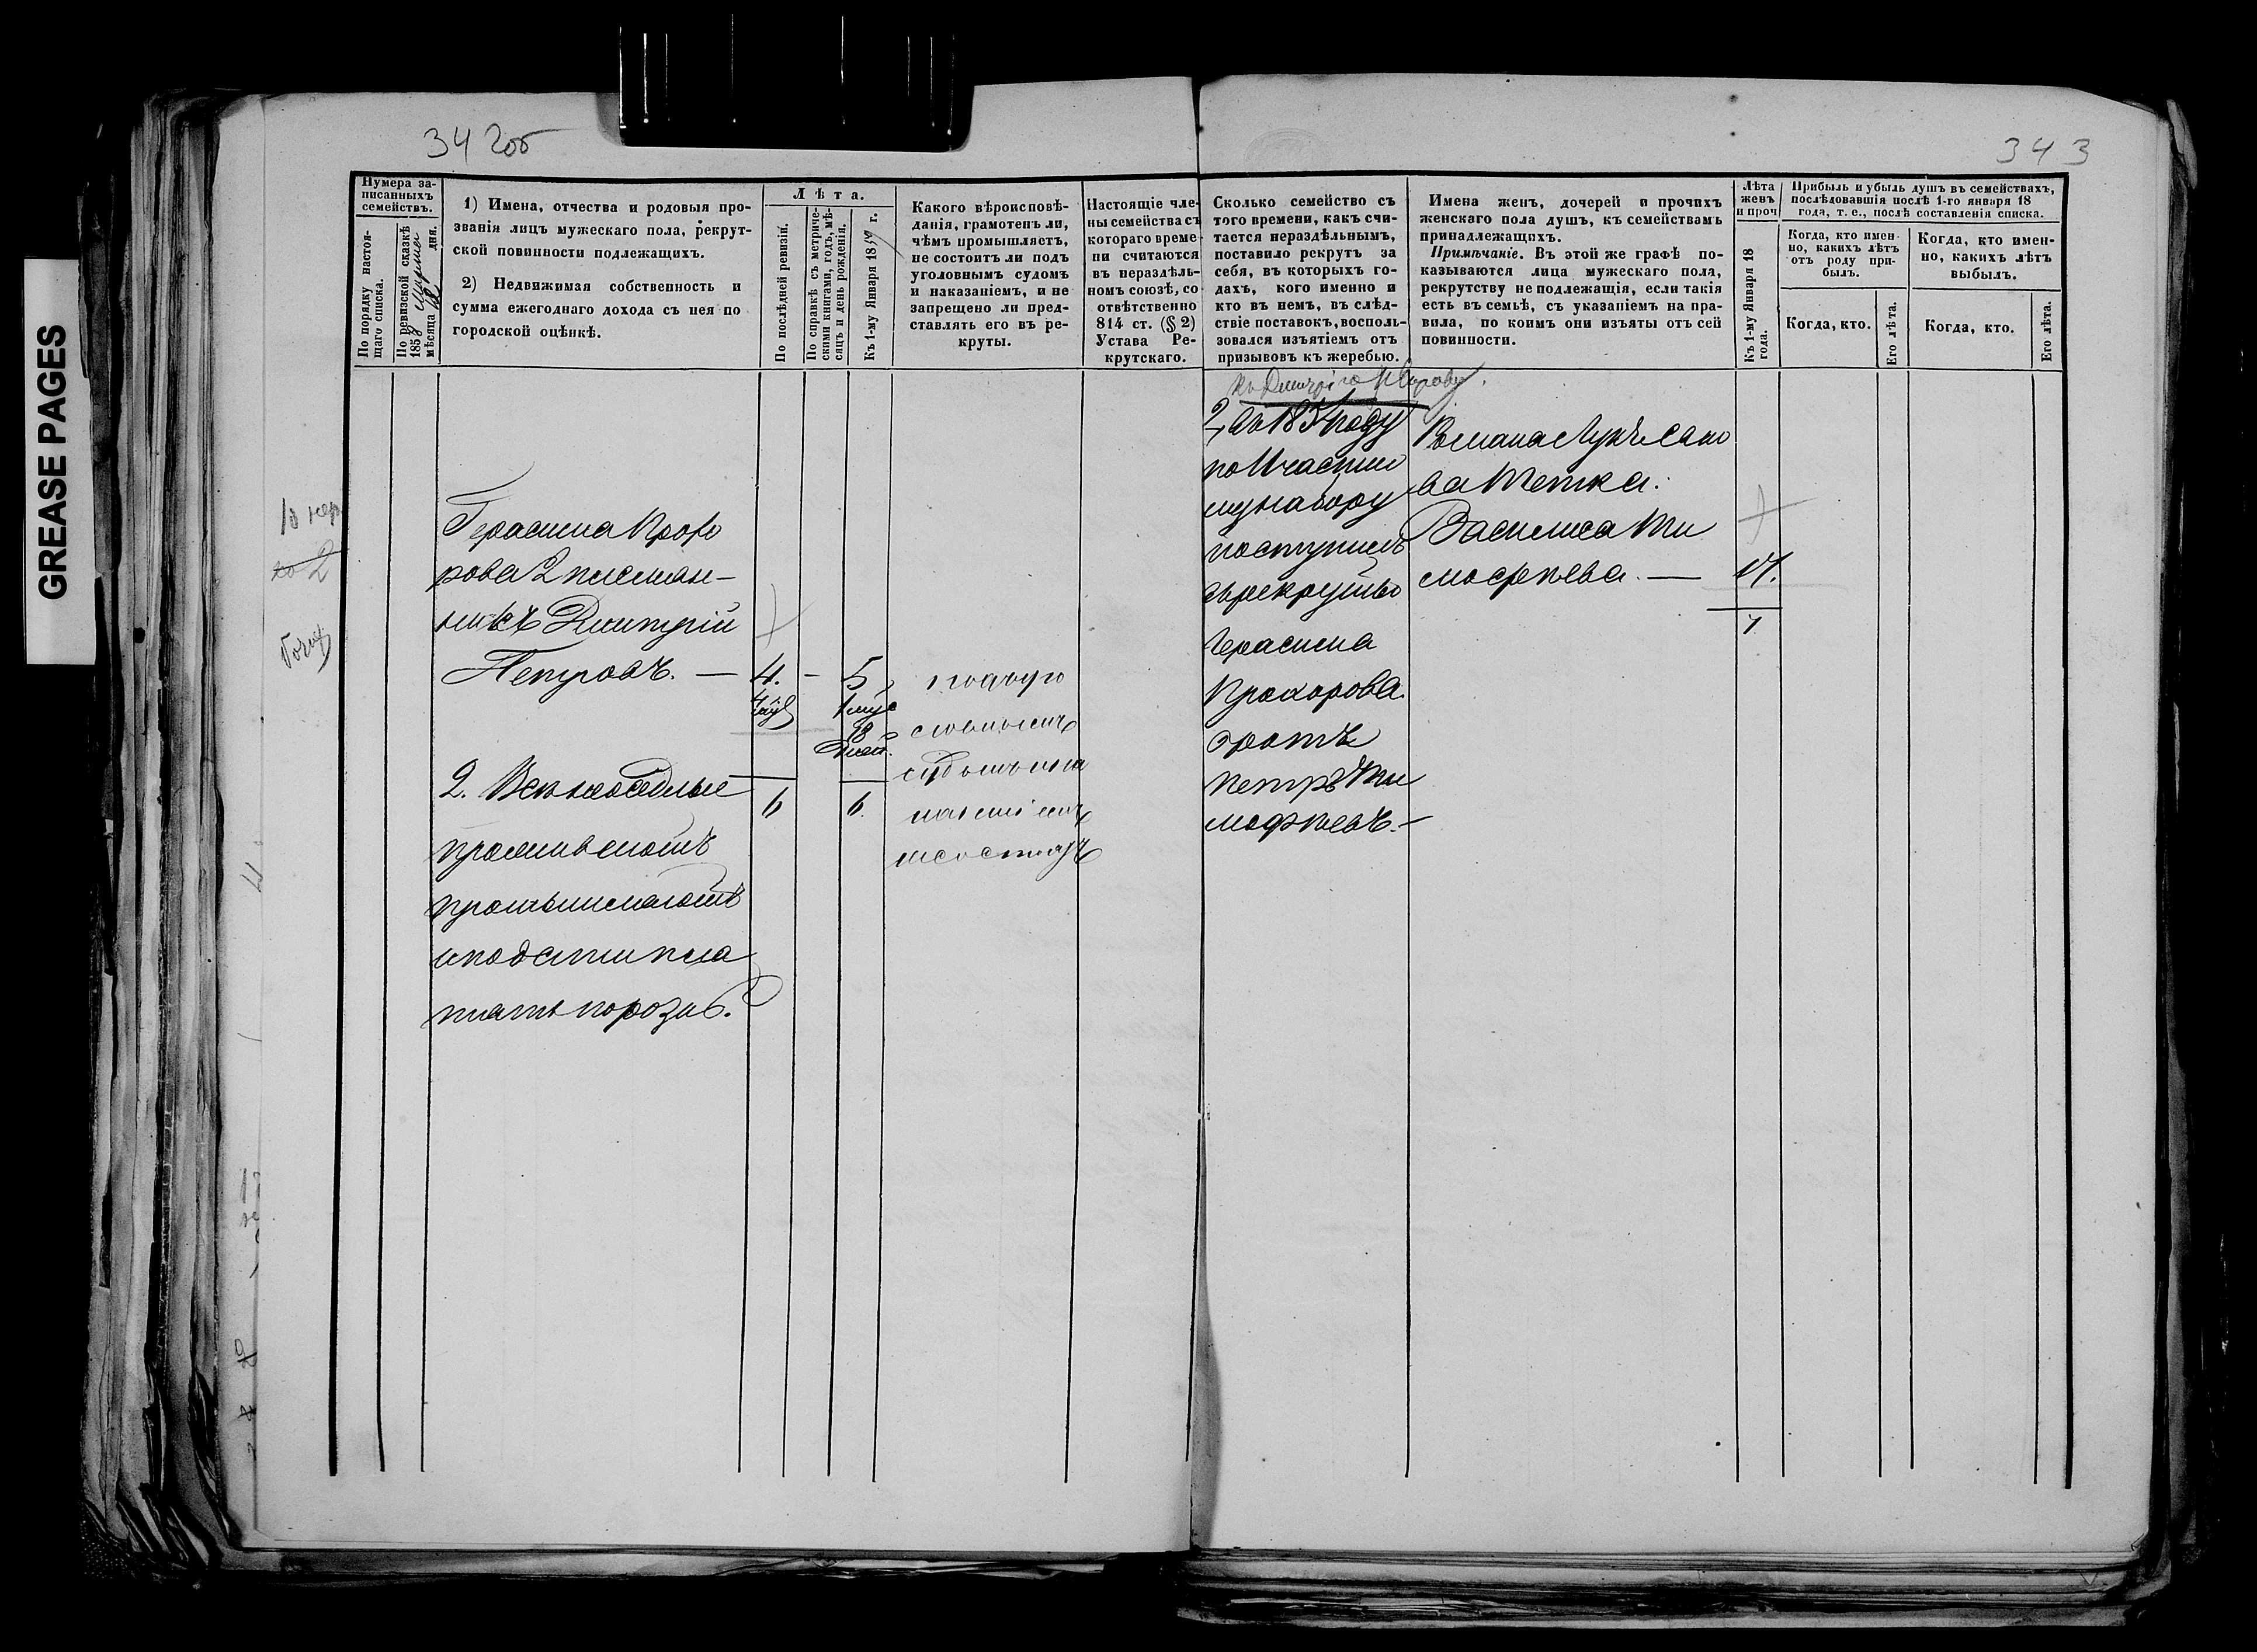 GREASE PAGES
342об
343
Нумера за-
писанныхъ
семействъ.
По порядку настоя-
щаго списка.
По ревизской сказкѣ
185 марта
мѣсяца дня.
1) Имена, отчества и родовыя про-
званія лицъ мужескаго пола, рекрут-
ской повинности подлежащихъ.
2) Недвижимая собственность и
сумма ежегоднаго дохода съ нея по
городской оцѣнкѣ.
Лѣта.
По послѣдней ревизіи.
По справкѣ съ метриче-
скими книгами, годъ, мѣ-
сяцъ и день рожденія.
Къ 1-му Января 18 г.
Какого вѣроисповѣ-
данія, грамотенъ ли,
чѣмъ промышляетъ,
не состоитъ ли подъ
уголовнымъ судомъ
и наказаніемъ, и не
запрещено ли пред-
ставлять его въ ре-
круты.
Настоящіе чле-
ны семейства съ
котораго време-
ни считаются
въ нераздѣль-
номъ союзѣ, со-
отвѣтственно
814 ст. (§ 2)
Устава Ре-
крутскаго.
Сколько семейство съ
того времени, какъ счи-
тается нераздѣльнымъ,
поставило рекрутъ за
себя, въ которыхъ го-
дахъ, кого именно и
кто въ немъ, въ слѣд-
ствіе поставокъ, восполь-
зовался изъятіемъ отъ
призывовъ къ жеребью.
Имена женъ, дочерей и прочихъ
женскаго пола душъ, къ семействамъ
принадлежащихъ.
Примѣчаніе. Въ этой же графѣ по-
казываются лица мужескаго пола,
рекрутству не подлежащія, если такія
есть въ семьѣ, съ указаніемъ на пра-
вила, по коимъ они изъяты отъ сей
повинности.
Лѣта
женъ
и проч
Къ 1-му Января 18
года.
Прибыль и убыль душъ въ семействахъ,
послѣдовавшія послѣ 1-го января 18
года, т. е., послѣ составленія списка.
Когда, кто имен-
но, какихъ лѣтъ
отъ роду при-
былъ.
Когда, кто имен-
но, какихъ лѣтъ
выбылъ.
Когда, кто.
Его лѣта.
Когда, кто.
Его лѣта.
Герасима Прохо
рова 2 племян-
никъ Дмитрій
Петровъ. — 4. — 5
2. Всѣ
6 6
промышляютъ
и подати пла
тятъ порознь.
судомъ и на
не состоитъ
2, въ 185 году
по частно
му набору
поступилъ
въ рекруты
Герасима
Прохорова
братъ
Петръ Ти
мофѣевъ. —
ва тетка.
Василиса Ти
мофѣева. — 17.